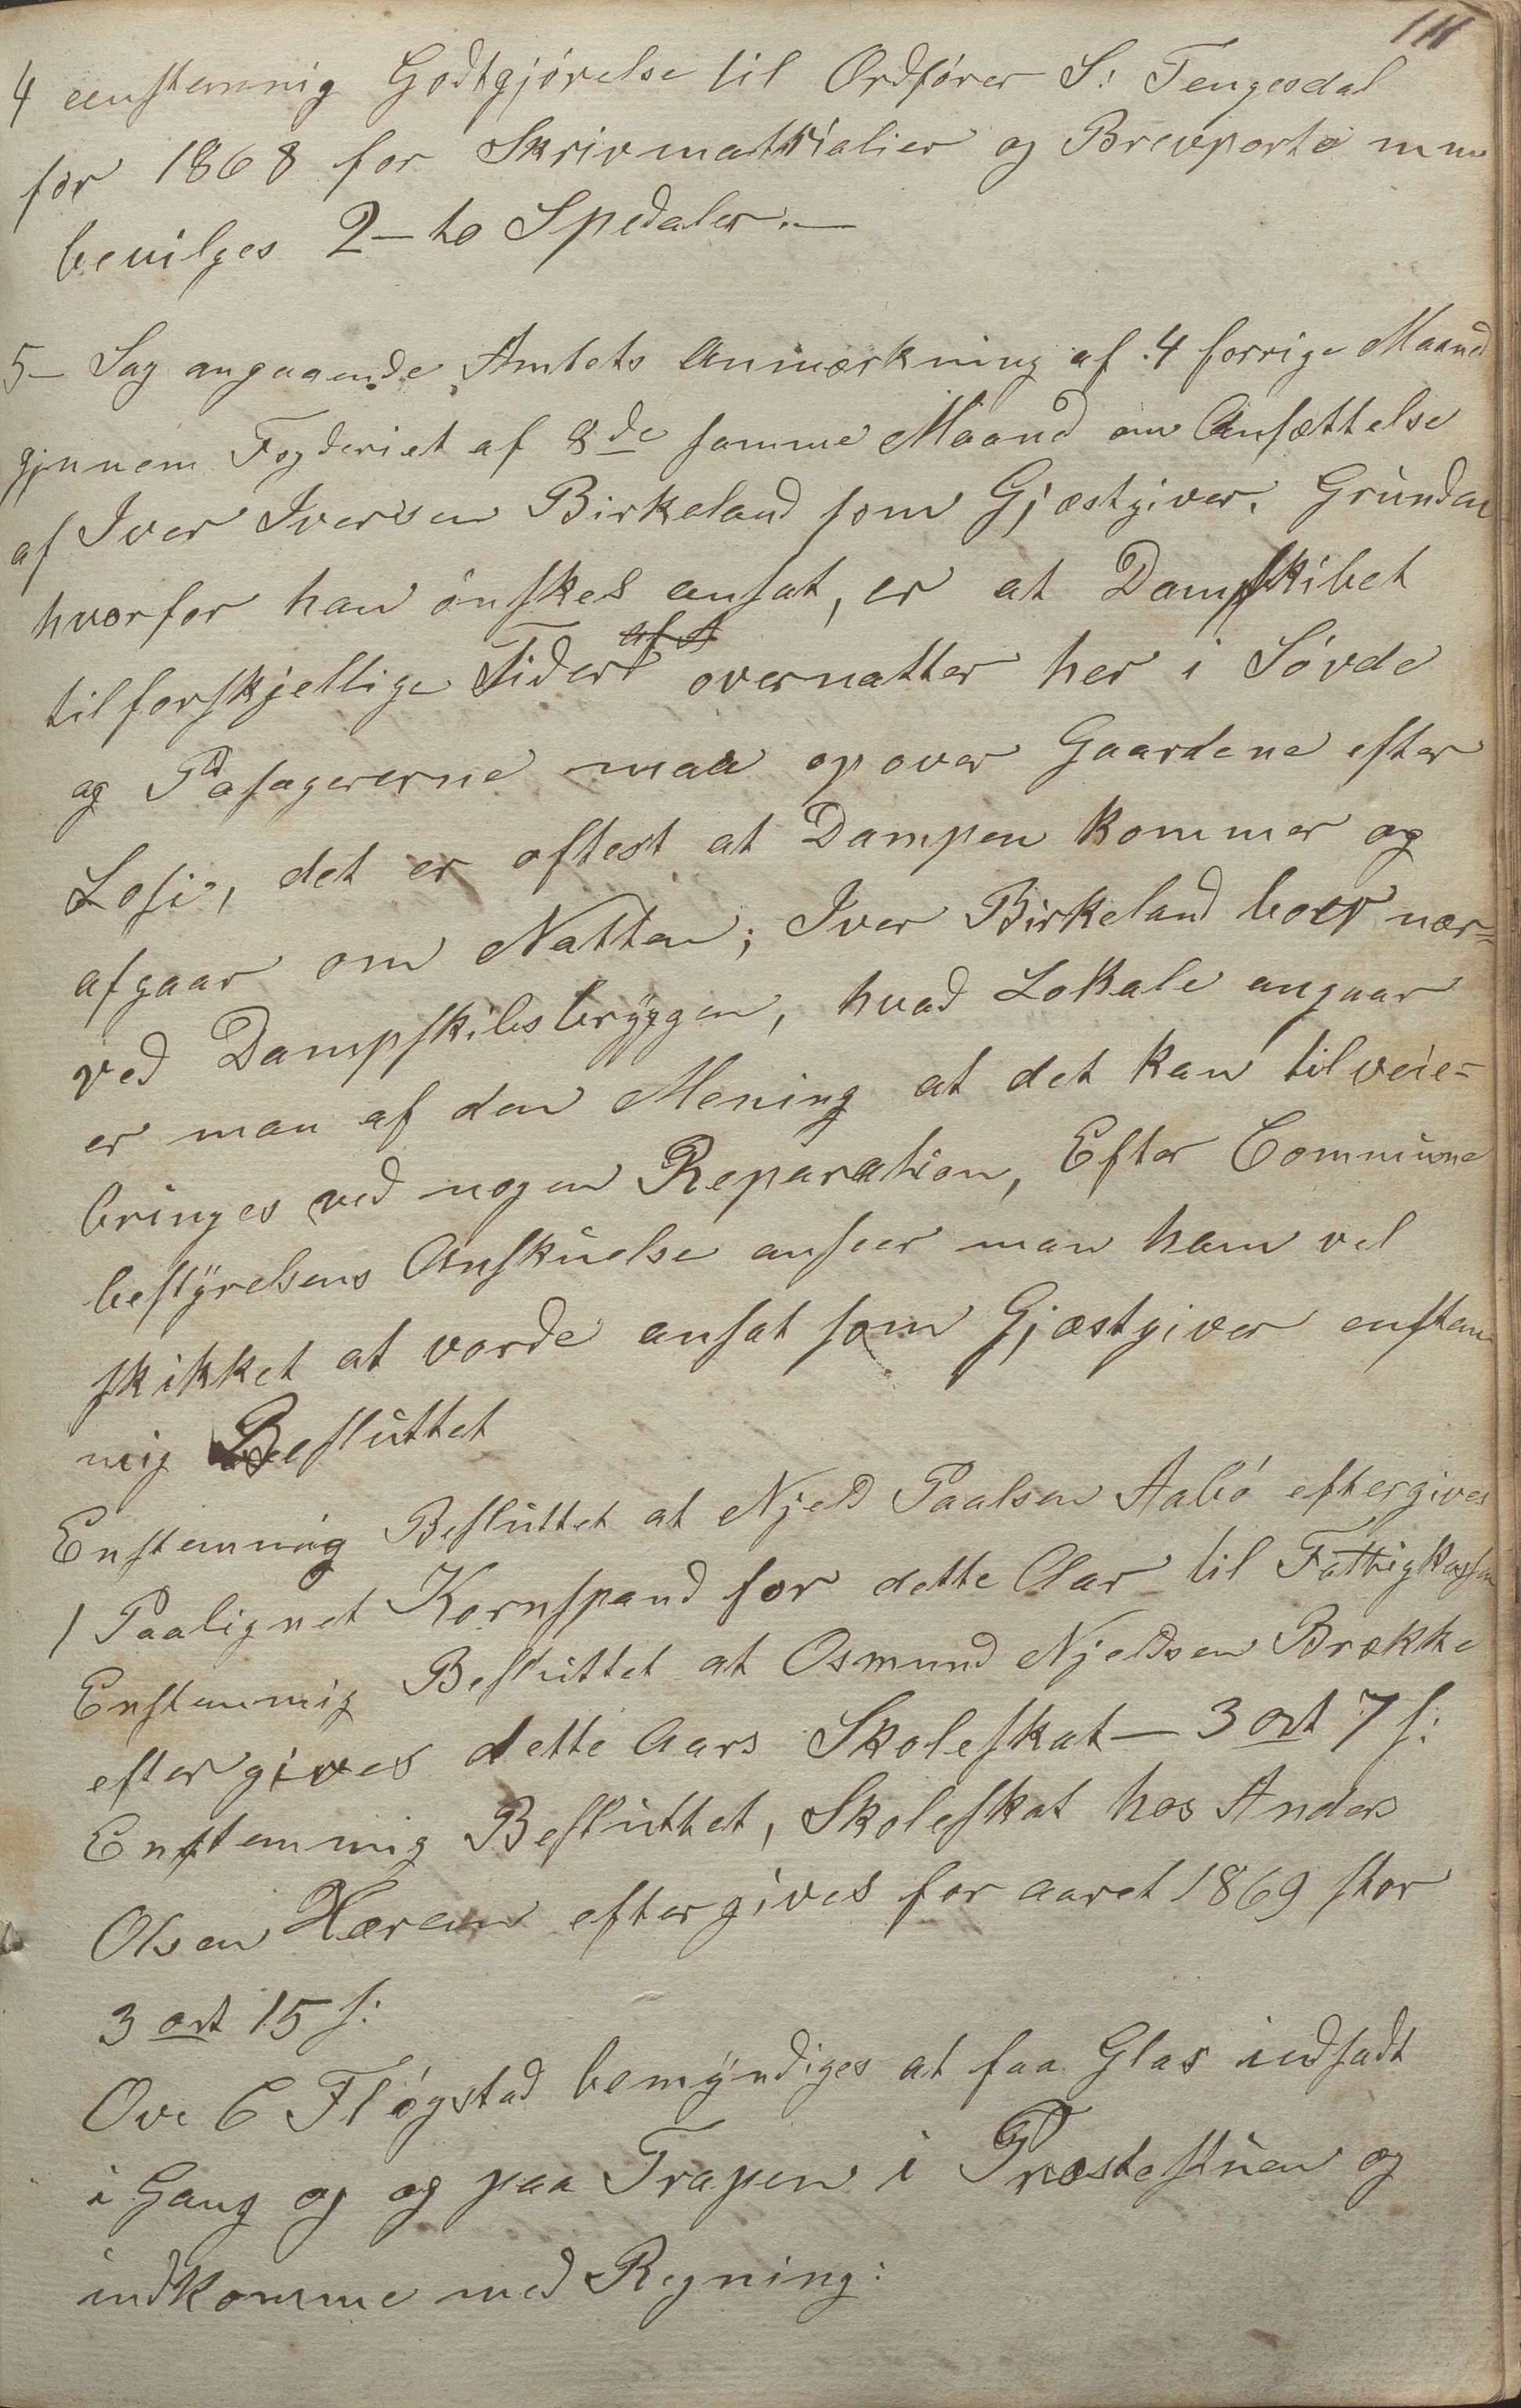 111
4 eenstemmig Godtgjörelse til Ordförer S: Tengesdal
for 1868 for Skrivmattrialier og Brevporto mm
bevilges 2 – to Spedaler. —
5 – Sag angaaende Amtets Anmærkning af 4 forrige Maaned
gjnnem Fogderiet af 8de samme Maaned om Ansættelse
af Iver Iversen Birkeland som Gjæstgiver. Grunden
hvorfor han önskes ansat, er at Dampskibet
til forskjellige Tider overnatter her i Sövde
og Pasagererne maa op over Gaardene efter
Losi, det er oftest at Dampen kommer og
afgaar om Natten; Iver Birkeland boer nær=
ved Dampskibsbryggen, hvad Lokale angaar
er man af den Mening at det kan tilveie=
bringes ved nogen Reparation, Efter Commune
bestyrelsens Anskuelse anseer man ham vel
skikket at vorde ansat som Gjæstgiver enstem
mig Besluttet
Enstemmig Besluttet at Njeld Paalsen Aabö eftergives
1 Paalignet Kornspand for dette Aar til Fattigkassen
Enstemmig Besluttet at Osmund Njeldsen Brække
eftergives dette Aars Skoleskat – 3 ort 7 s:
Enstemmig Besluttet, Skoleskat hos Anders
Olsen Hæreim eftergives for aaret 1869 stor
3 ort 15 s:
Ove C Flögstad bemyndiges at faa Glas indsadt
i Gang og og paa Trapen i Præstestuen og
indkomme med Regning: